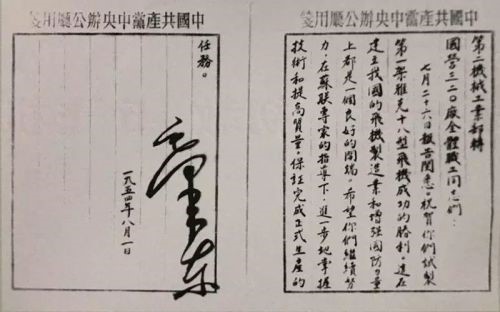 中國共產黨中央辦公廳用箋
第二機械工業部轉
國營三二〇廠全體職工同志們:
七月二十六日報告閱悉。祝賀你們試製
第一架雅克十八型飛機成功的勝利。這在
建立我國的飛機製造業和增強國防力量
上都是一個良好的開端。希望你們繼續努
力,在蘇聯專家的指導下,進一步地掌握
技術和提高質量,保証完成正式生產的
中國共產黨中央辦公廳用箋
任務。
毛澤東
一九五四年八月一日